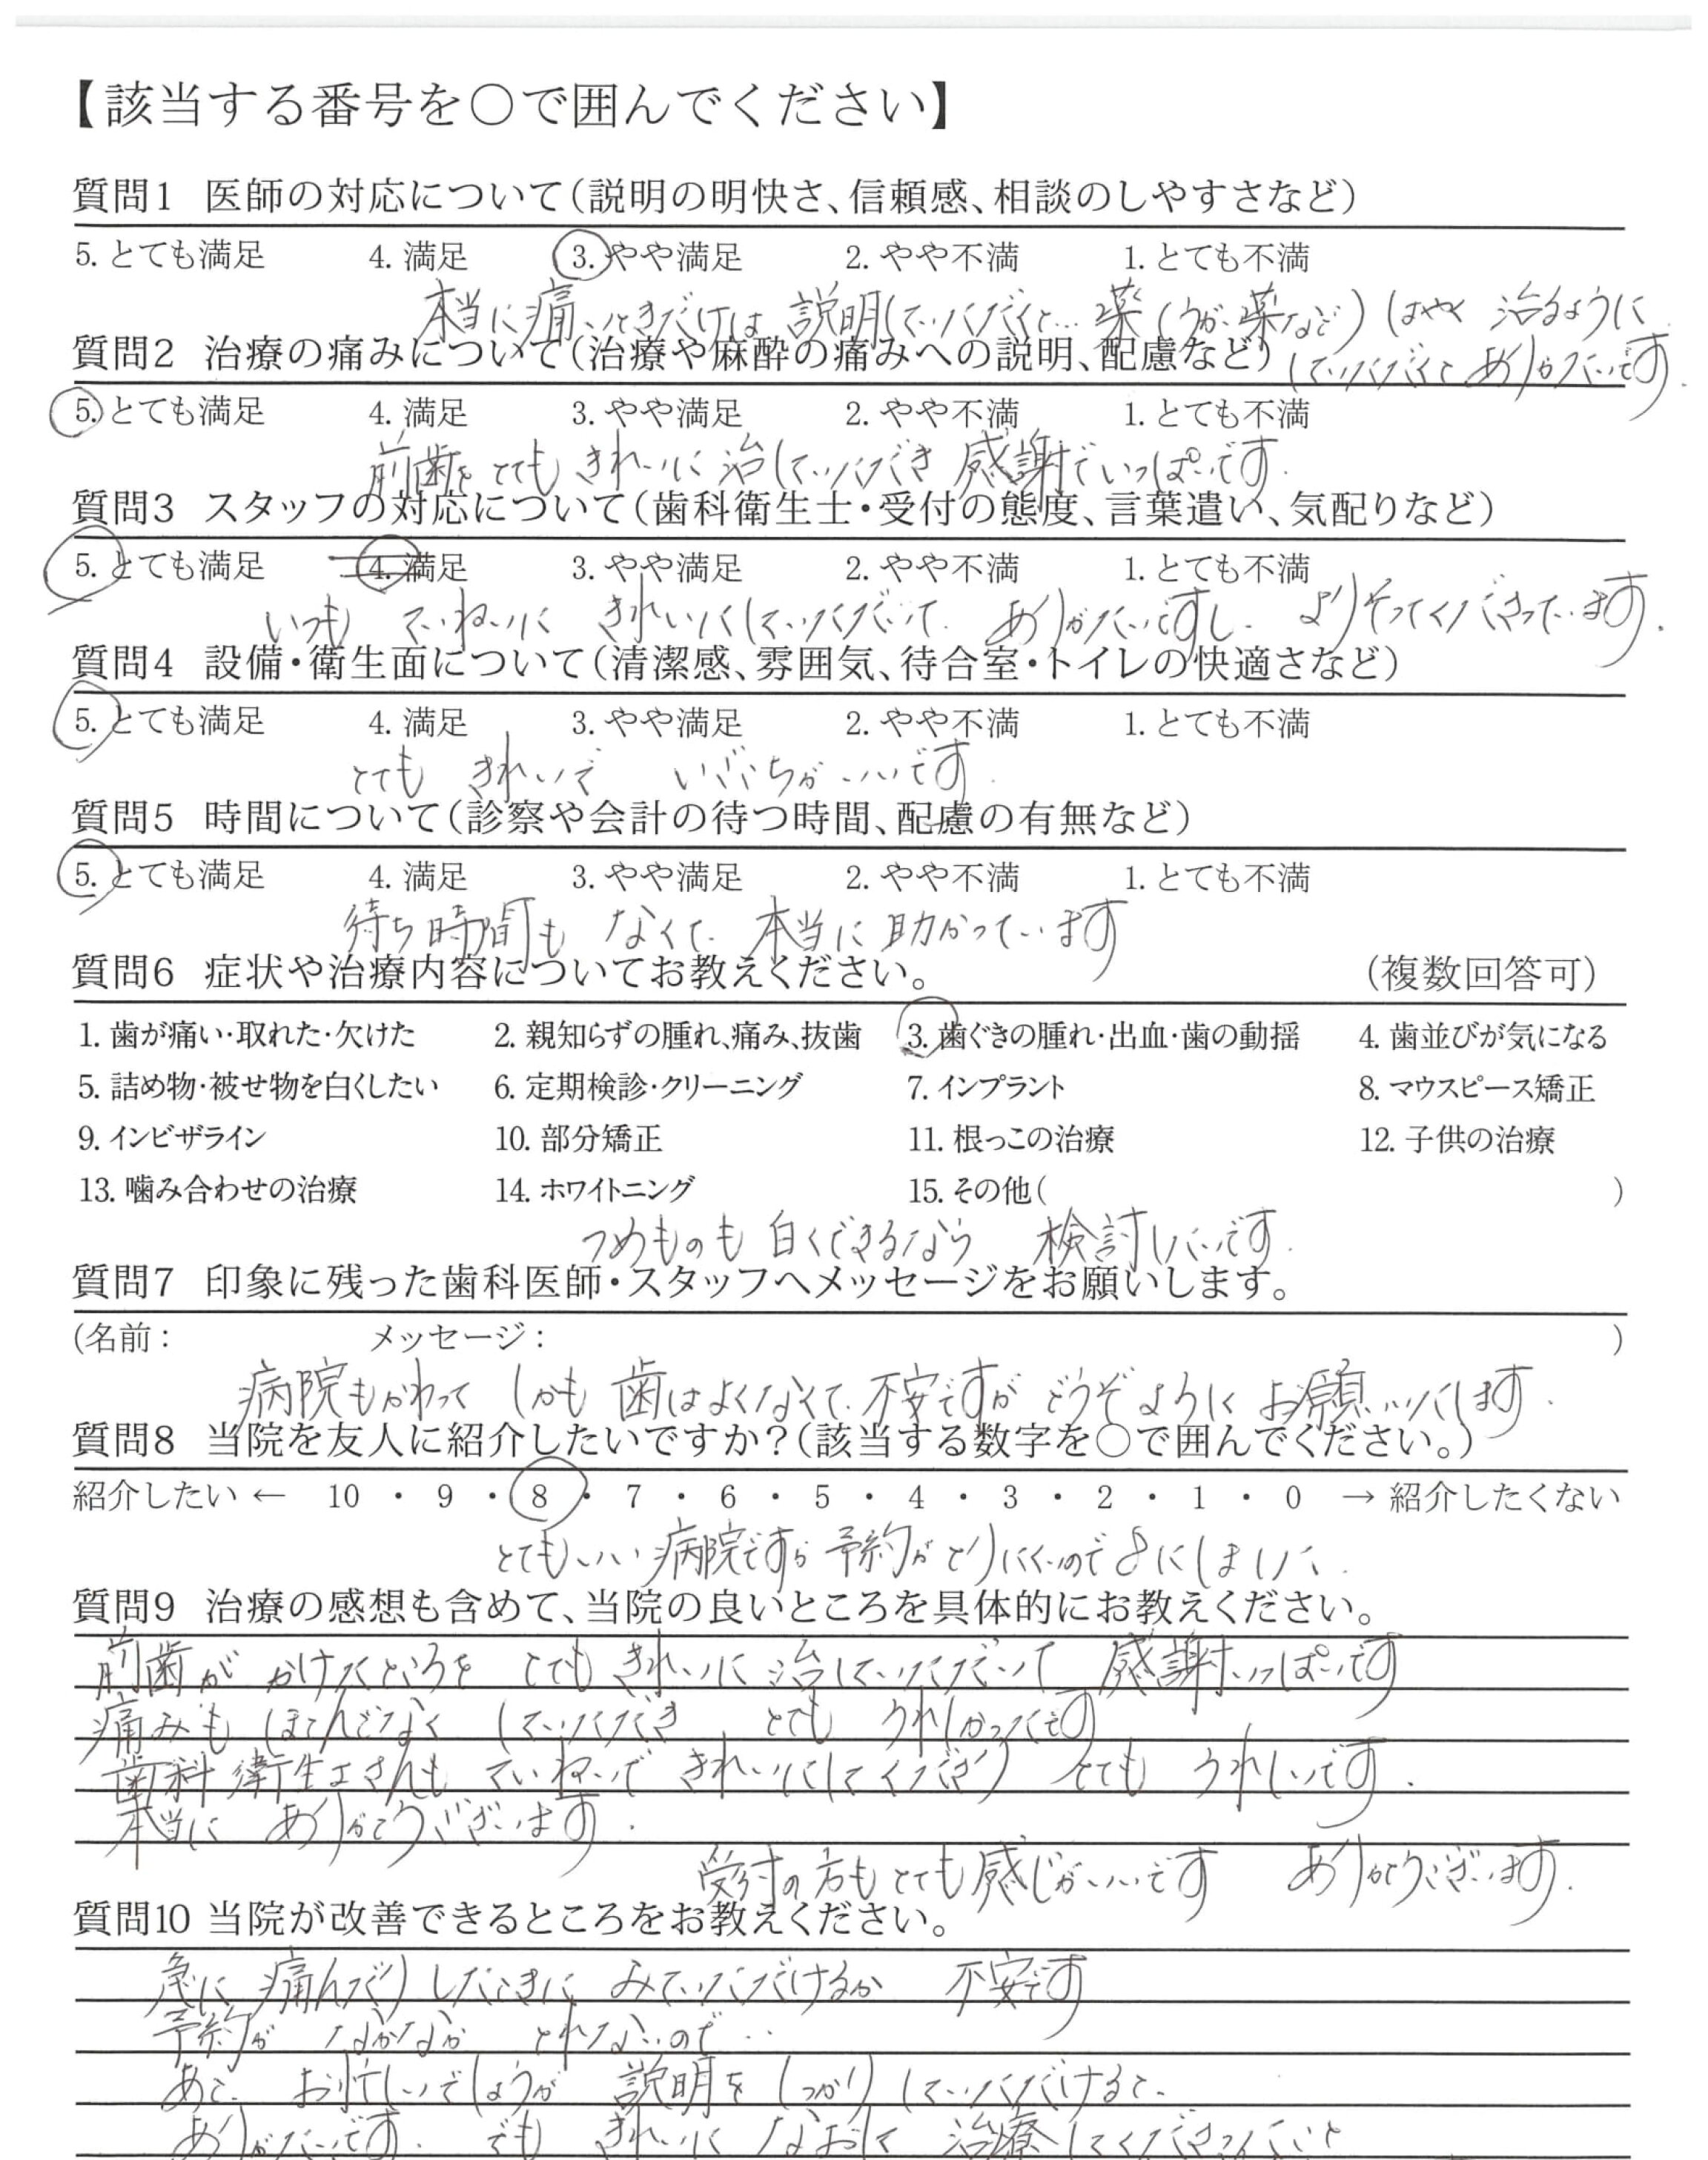 【該当する番号を○で囲んでください】
質問1 医師の対応について(説明の明快さ、信頼感、相談のしやすさなど)
5. とても満足 4. 満足 3. やや満足 2. やや不満 1. とても不満
本当に痛いときだけは 説明していただくと… 薬(うがい薬など) はやく 治るように
していただくと ありがたいです.
質問2 治療の痛みについて(治療や麻酔の痛みへの説明、配慮など)
5. とても満足 4. 満足 3. やや満足 2. やや不満 1. とても不満
前歯を とても きれいに 治していただき 感謝でいっぱいです.
質問3 スタッフの対応について(歯科衛生士・受付の態度、言葉遣い、気配りなど)
5. とても満足 4. 満足 3. やや満足 2. やや不満 1. とても不満
いつも ていねいに きれいにしていただいて ありがたいですし よりそってくださっています.
質問4 設備・衛生面について(清潔感、雰囲気、待合室・トイレの快適さなど)
5. とても満足 4. 満足 3. やや満足 2. やや不満 1. とても不満
とても きれいで いごこちが いいです.
質問5 時間について(診察や会計の待つ時間、配慮の有無など)
5. とても満足 4. 満足 3. やや満足 2. やや不満 1. とても不満
待ち時間も なくて 本当に 助かっています
質問6 症状や治療内容についてお教えください。 (複数回答可)
1. 歯が痛い・取れた・欠けた 2. 親知らずの腫れ、痛み、抜歯 3. 歯ぐきの腫れ・出血・歯の動揺 4. 歯並びが気になる
5. 詰め物・被せ物を白くしたい 6. 定期検診・クリーニング 7. インプラント 8. マウスピース矯正
9. インビザライン 10. 部分矯正 11. 根っこの治療 12. 子供の治療
13. 噛み合わせの治療 14. ホワイトニング 15. その他( )
つめものも 白くできるなら 検討したいです.
質問7 印象に残った歯科医師・スタッフへメッセージをお願いします。
(名前: メッセージ: )
病院もかわって しかも 歯はよくなくて 不安ですが どうぞ ように お願いいたします.
質問8 当院を友人に紹介したいですか?(該当する数字を○で囲んでください。)
紹介したい ← 10 ・ 9 ・ 8 ・ 7 ・ 6 ・ 5 ・ 4 ・ 3 ・ 2 ・ 1 ・ 0 → 紹介したくない
とてもいい 病院ですが 予約が とりにくいので 8にしました.
質問9 治療の感想も含めて、当院の良いところを具体的にお教えください。
前歯が かけたところを とても きれいに 治していただいて 感謝いっぱいです
痛みも ほとんどなく していただき とても うれしかったです
歯科衛生士さんも ていねいで きれいにしてくださり とても うれしいです.
本当に ありがとうございます.
受付の方もとても感じがいいです ありがとうございます.
質問10 当院が改善できるところをお教えください。
急に 痛んだりしたときに みていただけるか 不安です
予約が なかなか とれないので…
あと お忙しいでしょうが 説明を しっかり していただけると
ありがたいです. でも きれいに なおして 治療してくださっていると